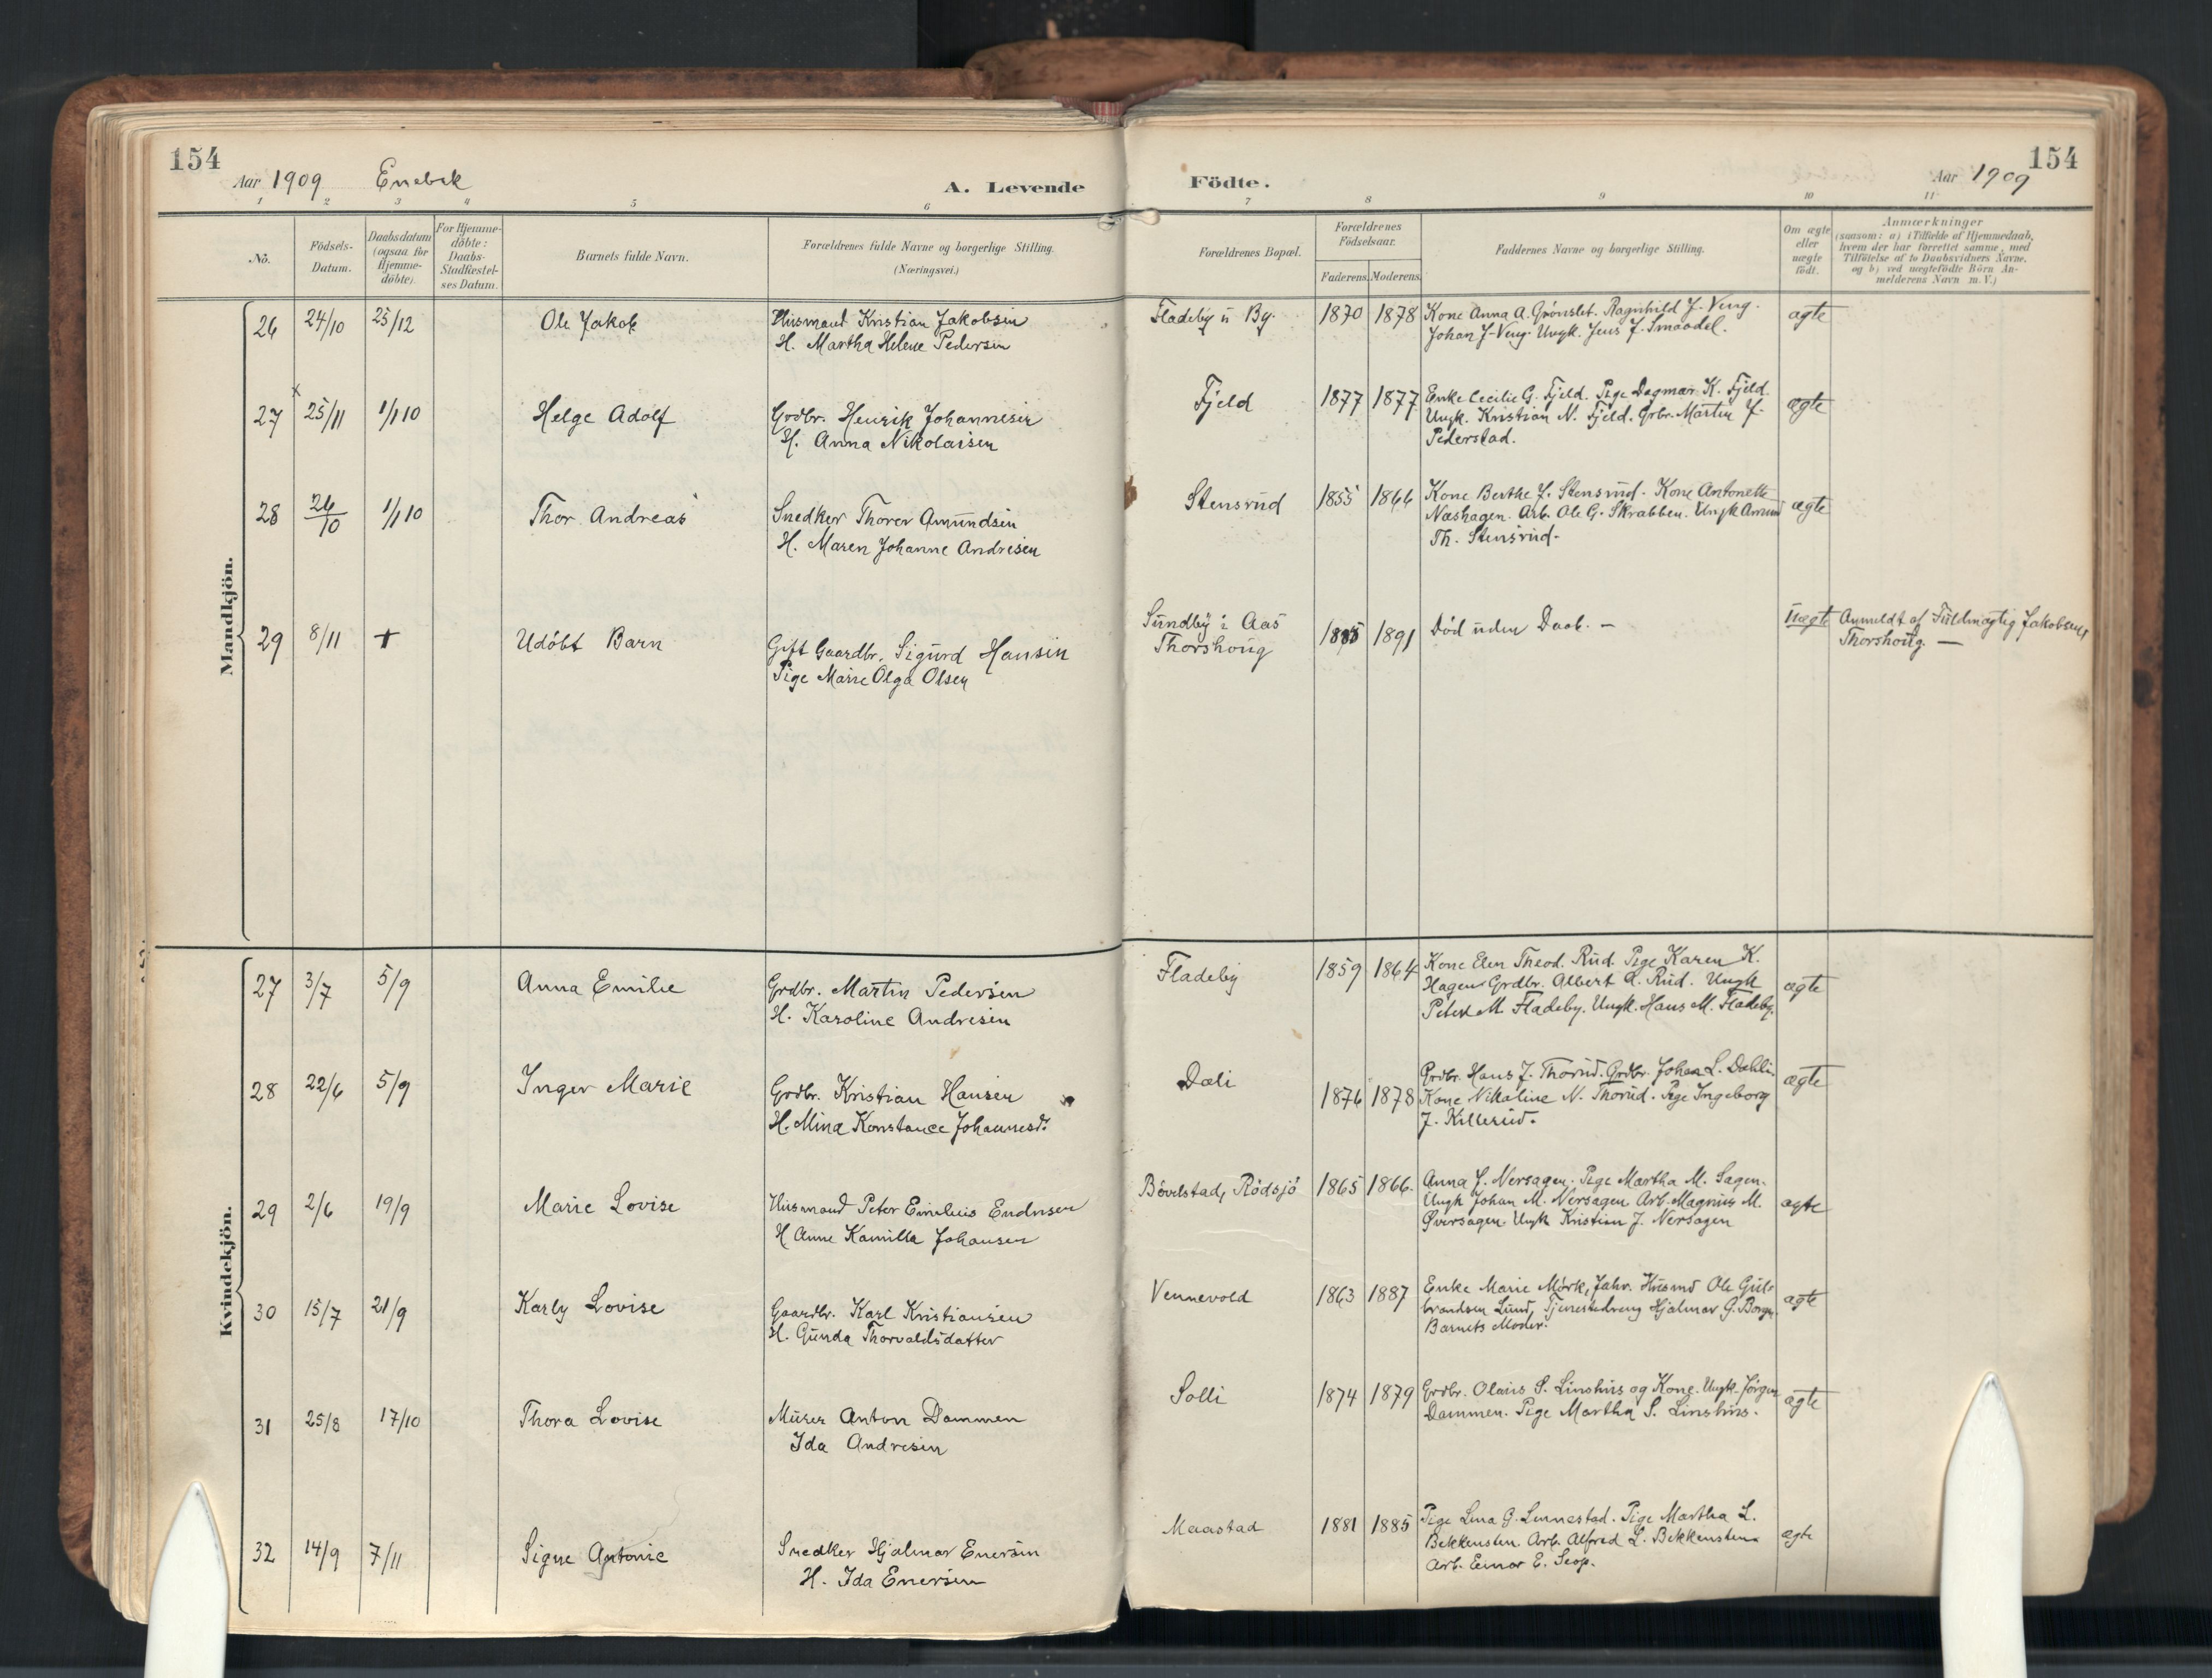 154
Aar 1909 Enebak
A. Levende
Födte.
Aar 1909
154
1 2 3 4 5 6 7 8 9 10 11
No.
Födsels-
Datum.
Daabsdatum
(ogsaa for
Hjemme-
döbte).
For Hjemme-
döbte:
Daabs-
Stadfæstel-
ses Datum.
Barnets fulde Navn.
Forældrenes fulde Navne og borgerlige Stilling.
(Næringsvei.)
Forældrenes Bopæl.
Forældrenes
Födselsaar.
Faderens. Moderens.
Faddernes Navne og borgerlige Stilling.
Om ægte
eller
uægte
födt.
Anmærkninger
(saasom: a) i Tilfælde af Hjemmedaab,
hvem der har forrettet samme, med
Tilföielse af to Daabsvidners Navne,
og b) ved uægtefödte Börn An-
melderens Navn m. V.)
Mandkjön.
26 24/10 25/12 Ole Jakob
Husmand Kristian Jakobsen
H. Martha Helene Pedersen
Fladeby u By. 1870 1878
Kone Anna A. Grønslet. Ragnhild J. Veng.
Johan J. Veng. Ungk. Jens J. Smaadel.
ægte
27 x 25/11 1/1 10 Helge Adolf
Grdbr. Henrik Johannesen
H. Anna Nikolaisen
Fjeld 1877 1877
Enke Cecilie G. Fjeld. Pige Dagmar K. Fjeld.
Ungk. Kristian N. Fjeld. Grbr. Martin J.
Pederstad.
ægte
28 26/10 1/1 10 Thor Andreas
Snedker Thorer Amundsen
H. Maren Johanne Andresen
Stensrud 1855 1866
Kone Berthe J. Stensrud. Kone Antonette
Næshagen. Arb. Ole G. Skrabben. Ungk Amund
Th. Stensrud.
ægte
29 8/11 + Udöbt Barn
Gift Gaardbr. Sigurd Hansen
Pige Marie Olga Olsen
Sundby i Aas
Thorshoug
1885 1891
Död uden Daab. —
Uægte
Anmeldt af Fuldmægtig Jakobsen,
Thorshoug. —
Kvindekjön.
27 3/7 5/9 Anna Emilie
Grdbr. Martin Pedersen
H. Karoline Andresen
Fladeby 1859 1864
Kone Elen Theod. Rud. Pige Karen K.
Hagen Grdbr. Albert A. Rud. Ungk
Peter M Fladeby. Ungk. Hans M. Fladeby.
ægte
28 22/6 5/9 Inger Marie
Grdbr. Kristian Hansen
H. Mina Konstance Johannesd.
Dæli 1876 1878
Grdbr. Hans J. Thorud. Grdbr. Johan L. Dæhli.
Kone Nikoline N. Thorud. Pige Ingeborg
J. Killerud.
ægte
29 2/6 19/9 Marie Lovise
Husmand Peter Emilius Endresen
H Anne Kamilla Johansen
Bövelstad, Rödsjö 1865 1866.
Anna J. Nersagen. Pige Martha M. Sagen.
Ungk Johan M. Nersagen Arb. Magnus M.
Øversagen. Ungk Kristian J. Nersagen
ægte
30 15/7 21/9 Karly Lovise
Gaardbr. Karl Kristiansen
H. Gunda Thorvaldsdatter
Vennevold 1863 1887
Enke Marie Mörk, Jahr. Husmd Ole Gul-
brandsen Lund, Tjenestedreng Hjalmar G. Borgn.
Barnets Moder.
ægte
31 25/8 17/10 Thora Lovise
Murer Anton Dammen
Ida Andresen
Solli 1874 1879
Grdbr. Olaus S. Linshus og Kone. Ungk. Jörgen
Dammen. Pige Martha S. Linshus.
ægte
32 14/9 7/11 Signe Antonie
Snedker Hjalmar Enersen
H. Ida Enersen
Maastad 1881 1885
Pige Lina G. Lunnestad. Pige Martha L.
Bekkensten. Arb. Alfred L. Bekkensten
Arb. Einar E.
ægte